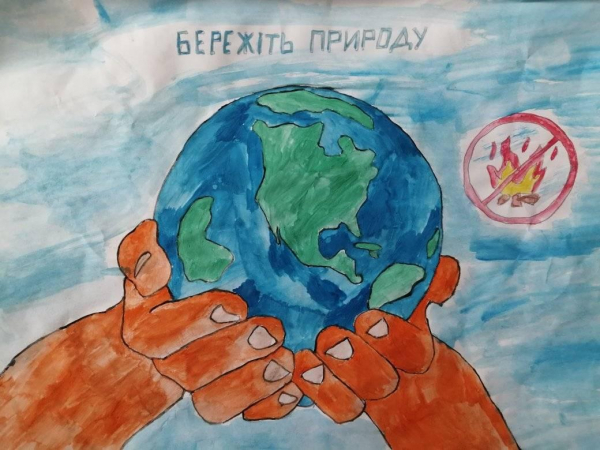 БЕРЕЖІТЬ ПРИРОДУ